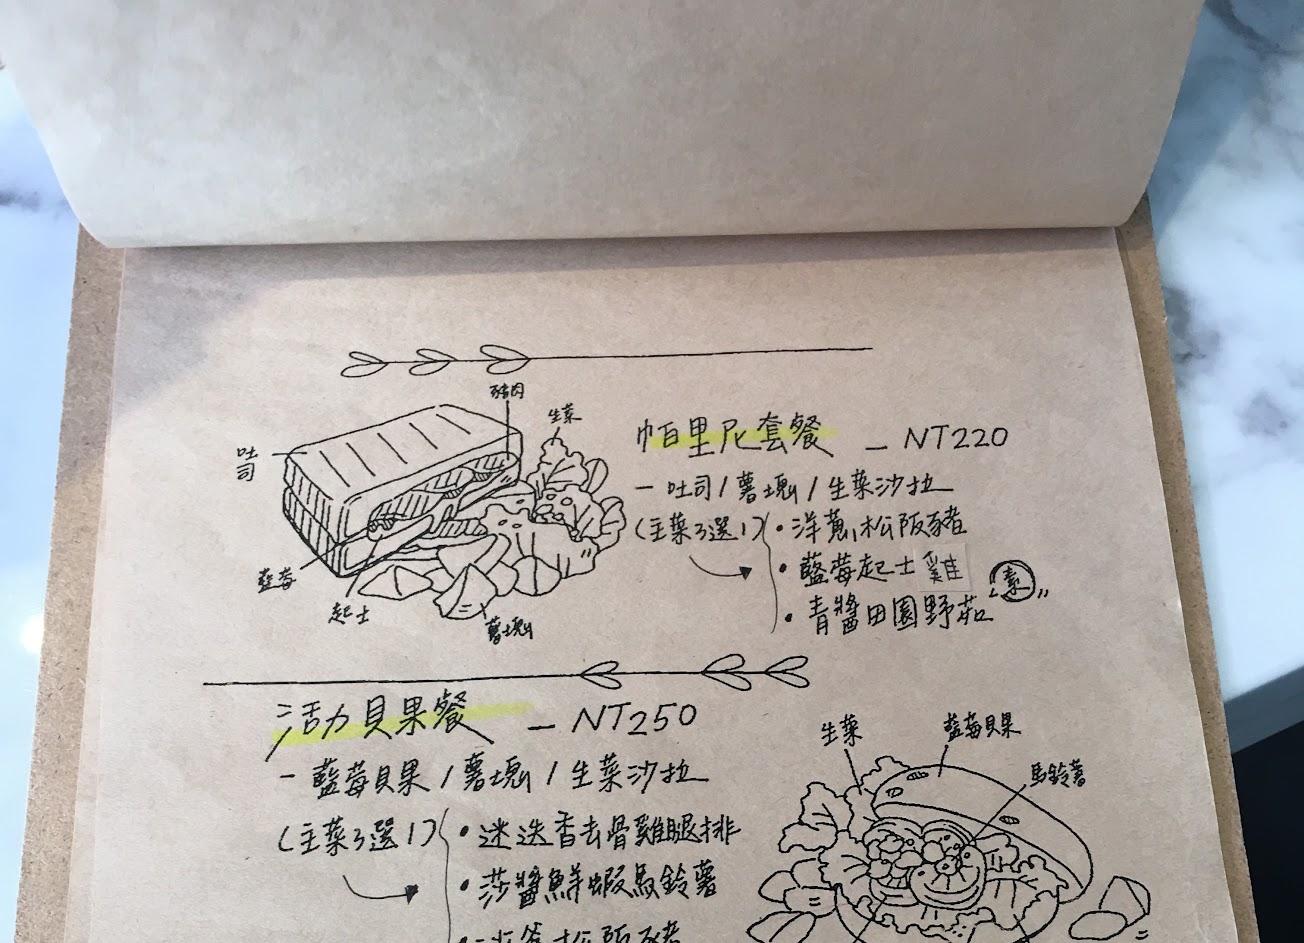 豬肉
生菜
吐司
藍莓
起士
薯塊
帕里尼套餐 - NT220
- 吐司 / 薯塊 / 生菜沙拉
(主菜3選1)
• 洋蔥松阪豬
• 藍莓起士雞
• 青醬田園野菇 "素"
活力貝果餐 - NT250
- 藍莓貝果 / 薯塊 / 生菜沙拉
(主菜3選1)
• 迷迭香去骨雞腿排
• 莎醬鮮蝦馬鈴薯
松阪豬
生菜
藍莓貝果
馬鈴薯